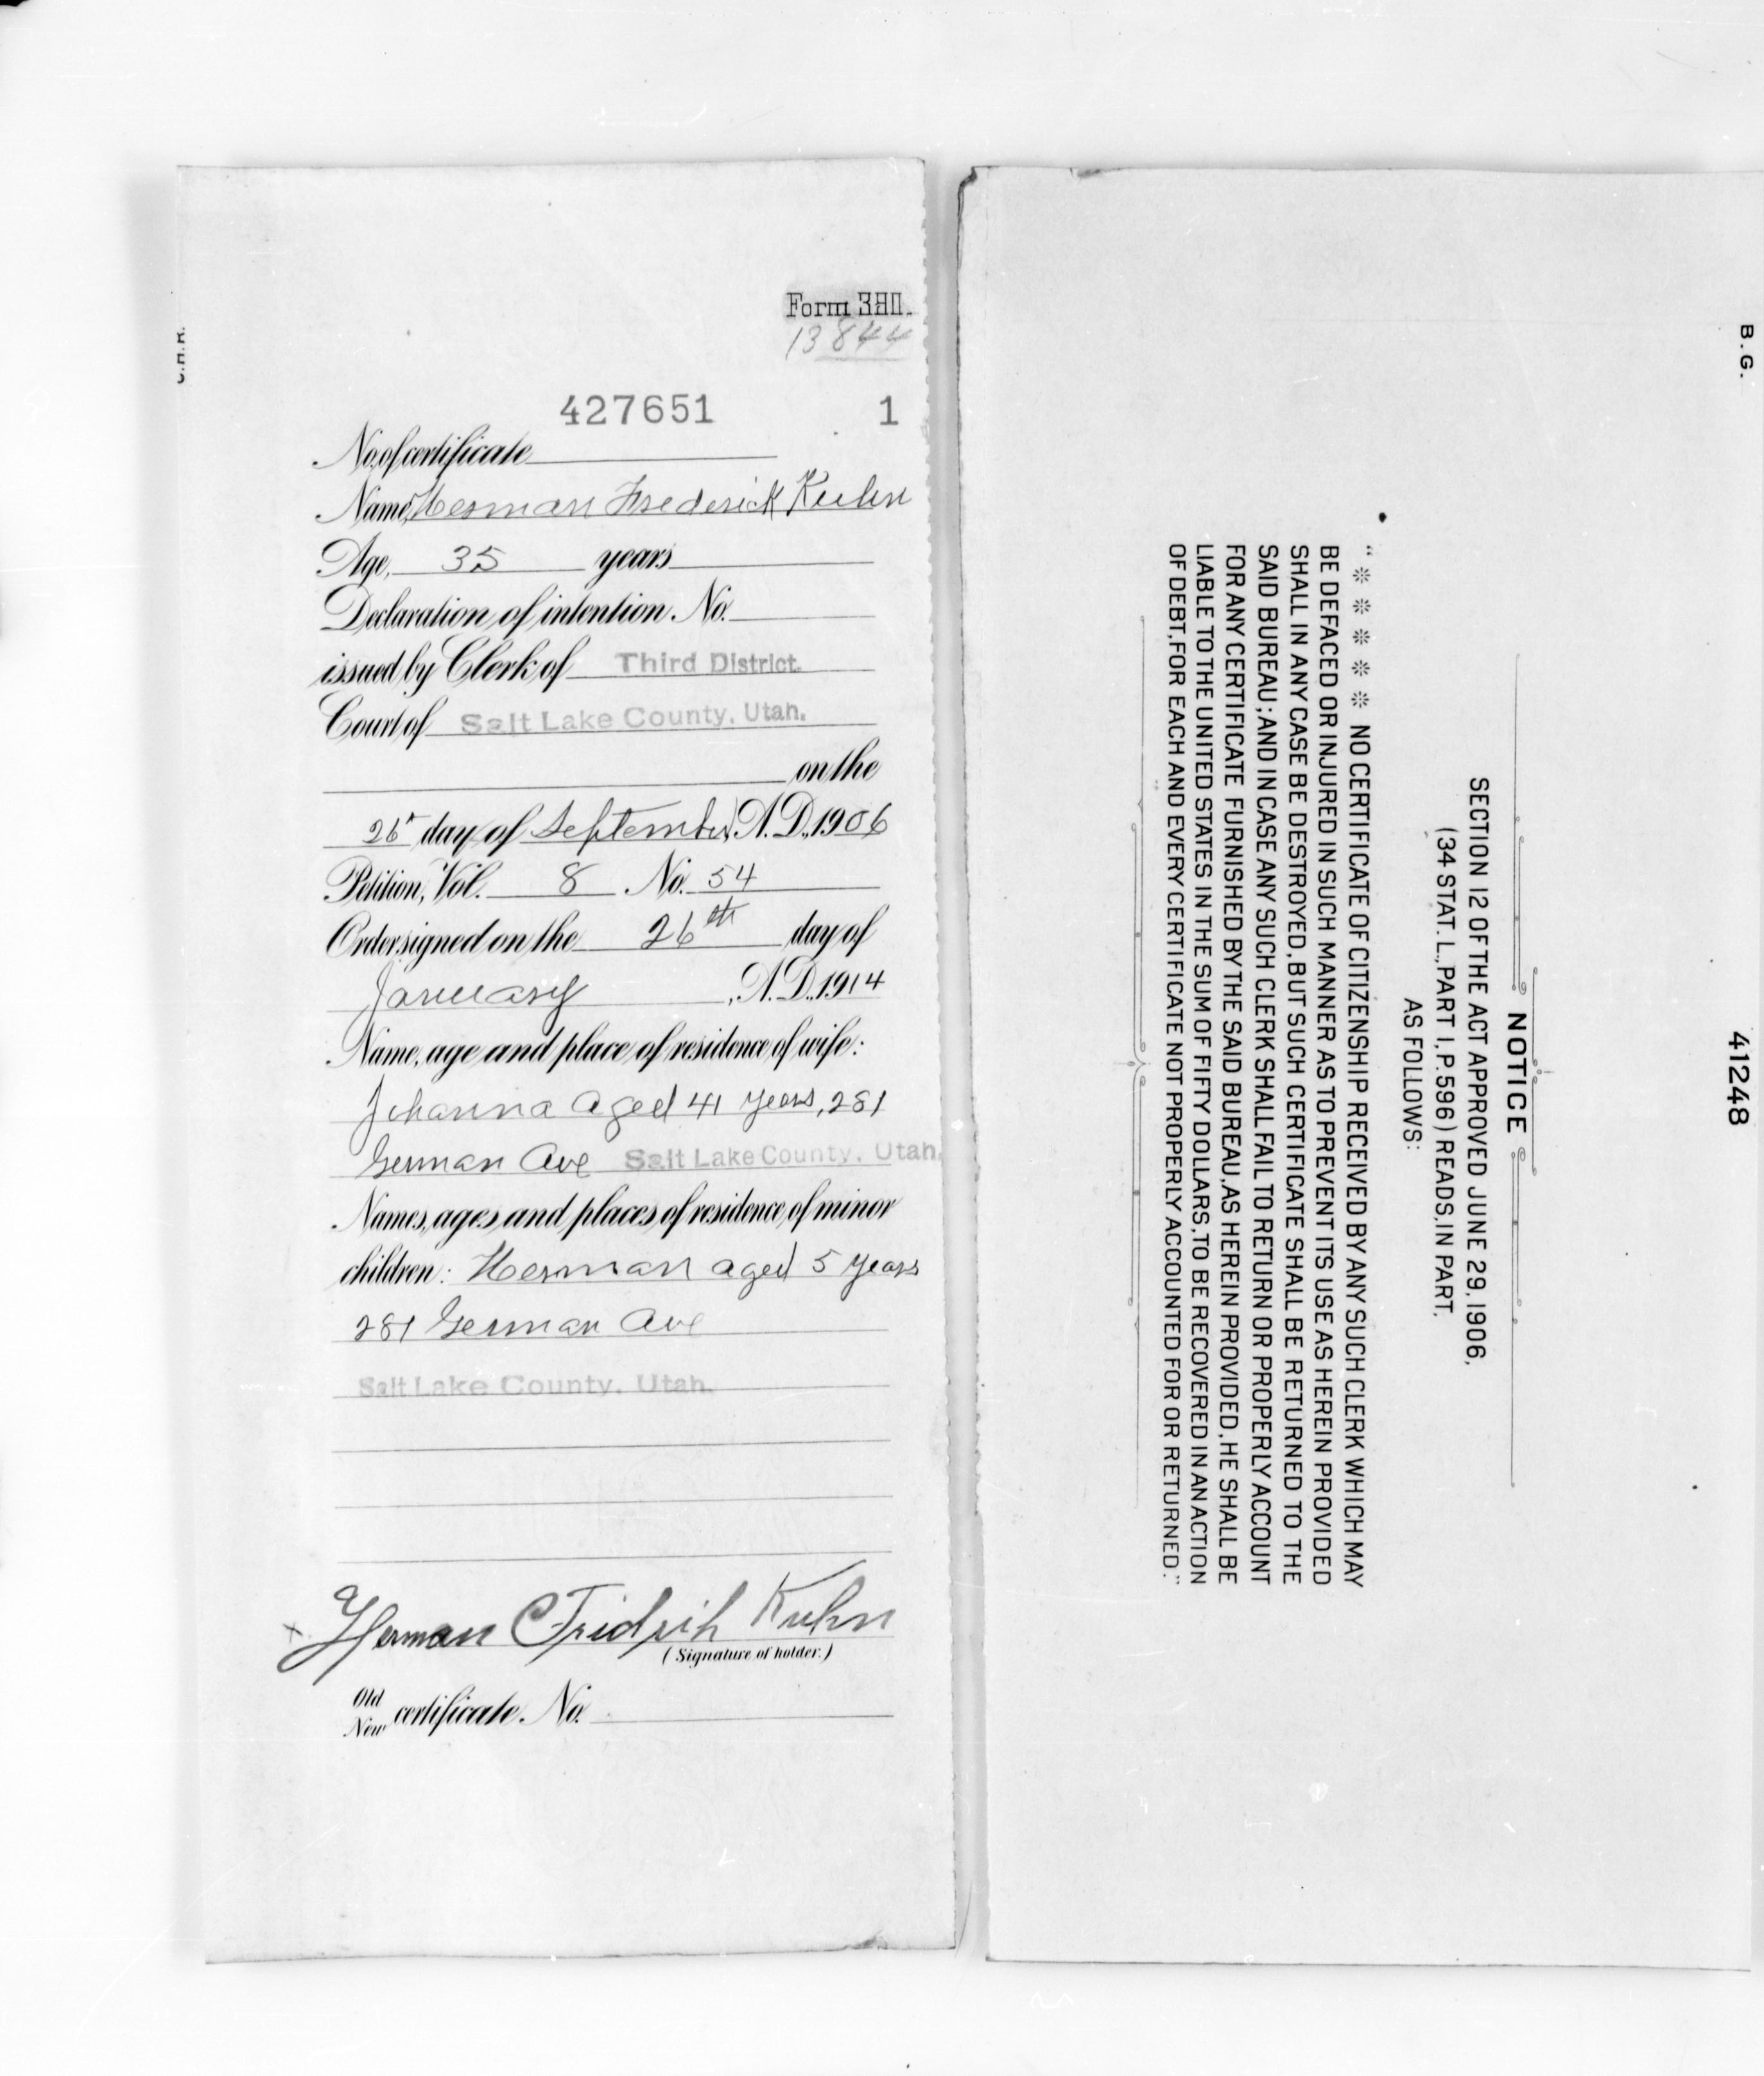 Form 380.
13844
427651 1
No. of certificate
Name, Herman Frederick Kuhn
Age, 35 years
Declaration of intention. No.
issued by Clerk of Third District.
Court of Salt Lake County, Utah.
on the
26" day of September, A. D., 1906
Petition, Vol. 8 No. 54
Order signed on the 26th day of
January, A. D., 1914
Name, age and place of residence of wife:
Johanna aged 41 years, 281
German Ave Salt Lake County, Utah.
Names, ages and places of residence of minor
children: Herman aged 5 years
281 German Ave
Salt Lake County, Utah.
Herman Fridrih Kuhn
(Signature of holder.)
Old
New certificate. No.
NOTICE
SECTION 12 OF THE ACT APPROVED JUNE 29, 1906,
(34 STAT. L., PART I, P. 596) READS, IN PART,
AS FOLLOWS:
"* * * * * NO CERTIFICATE OF CITIZENSHIP RECEIVED BY ANY SUCH CLERK WHICH MAY
BE DEFACED OR INJURED IN SUCH MANNER AS TO PREVENT ITS USE AS HEREIN PROVIDED
SHALL IN ANY CASE BE DESTROYED, BUT SUCH CERTIFICATE SHALL BE RETURNED TO THE
SAID BUREAU; AND IN CASE ANY SUCH CLERK SHALL FAIL TO RETURN OR PROPERLY ACCOUNT
FOR ANY CERTIFICATE FURNISHED BY THE SAID BUREAU, AS HEREIN PROVIDED, HE SHALL BE
LIABLE TO THE UNITED STATES IN THE SUM OF FIFTY DOLLARS, TO BE RECOVERED IN AN ACTION
OF DEBT, FOR EACH AND EVERY CERTIFICATE NOT PROPERLY ACCOUNTED FOR OR RETURNED."
B.G.
41248